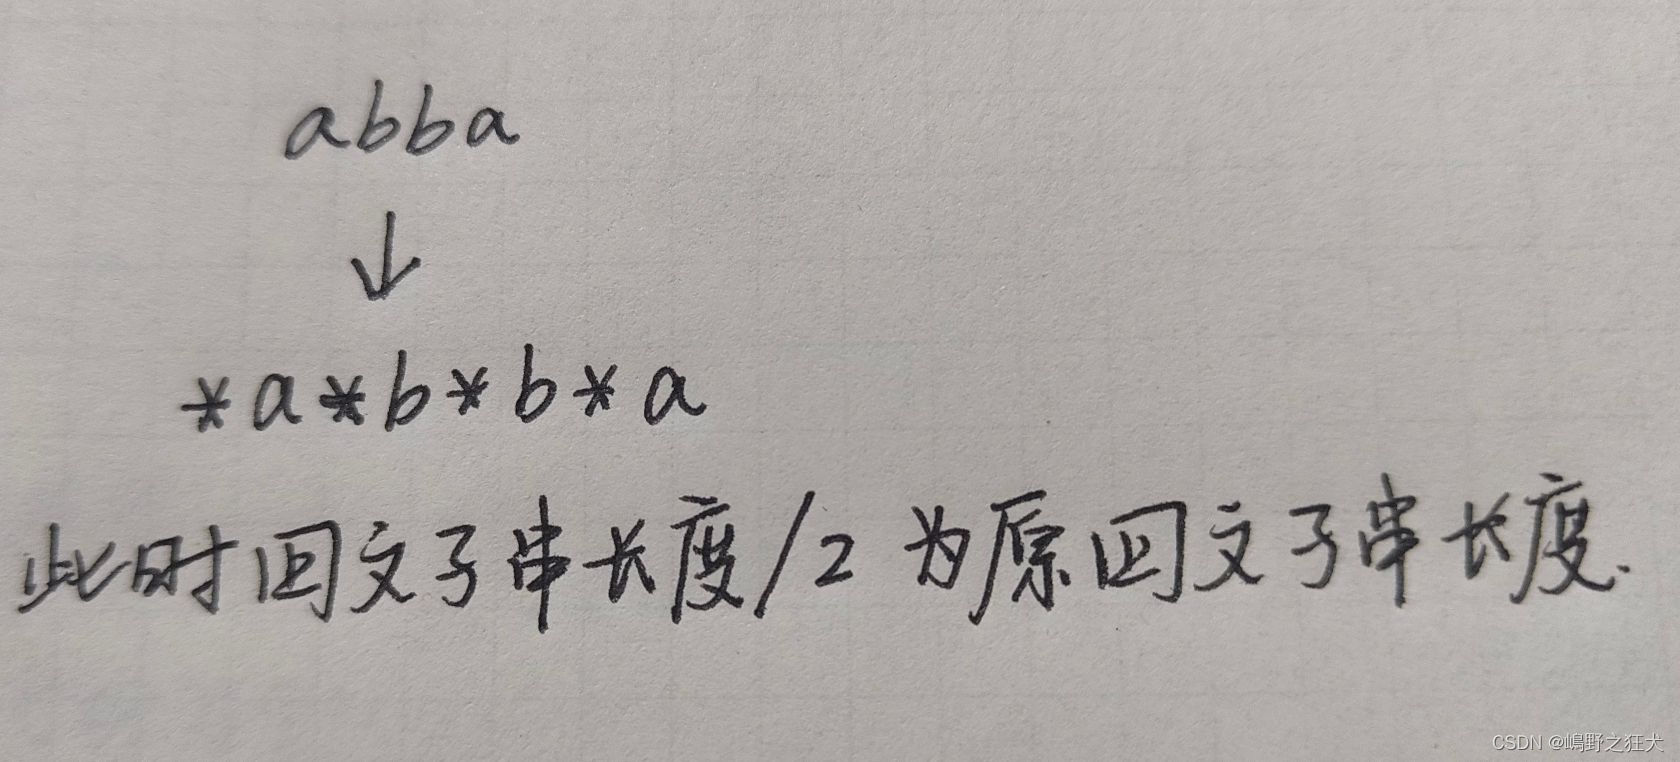 abba
↓
*a*b*b*a
此时回文子串长度/2 为原回文子串长度.
CSDN @嶋野之狂犬